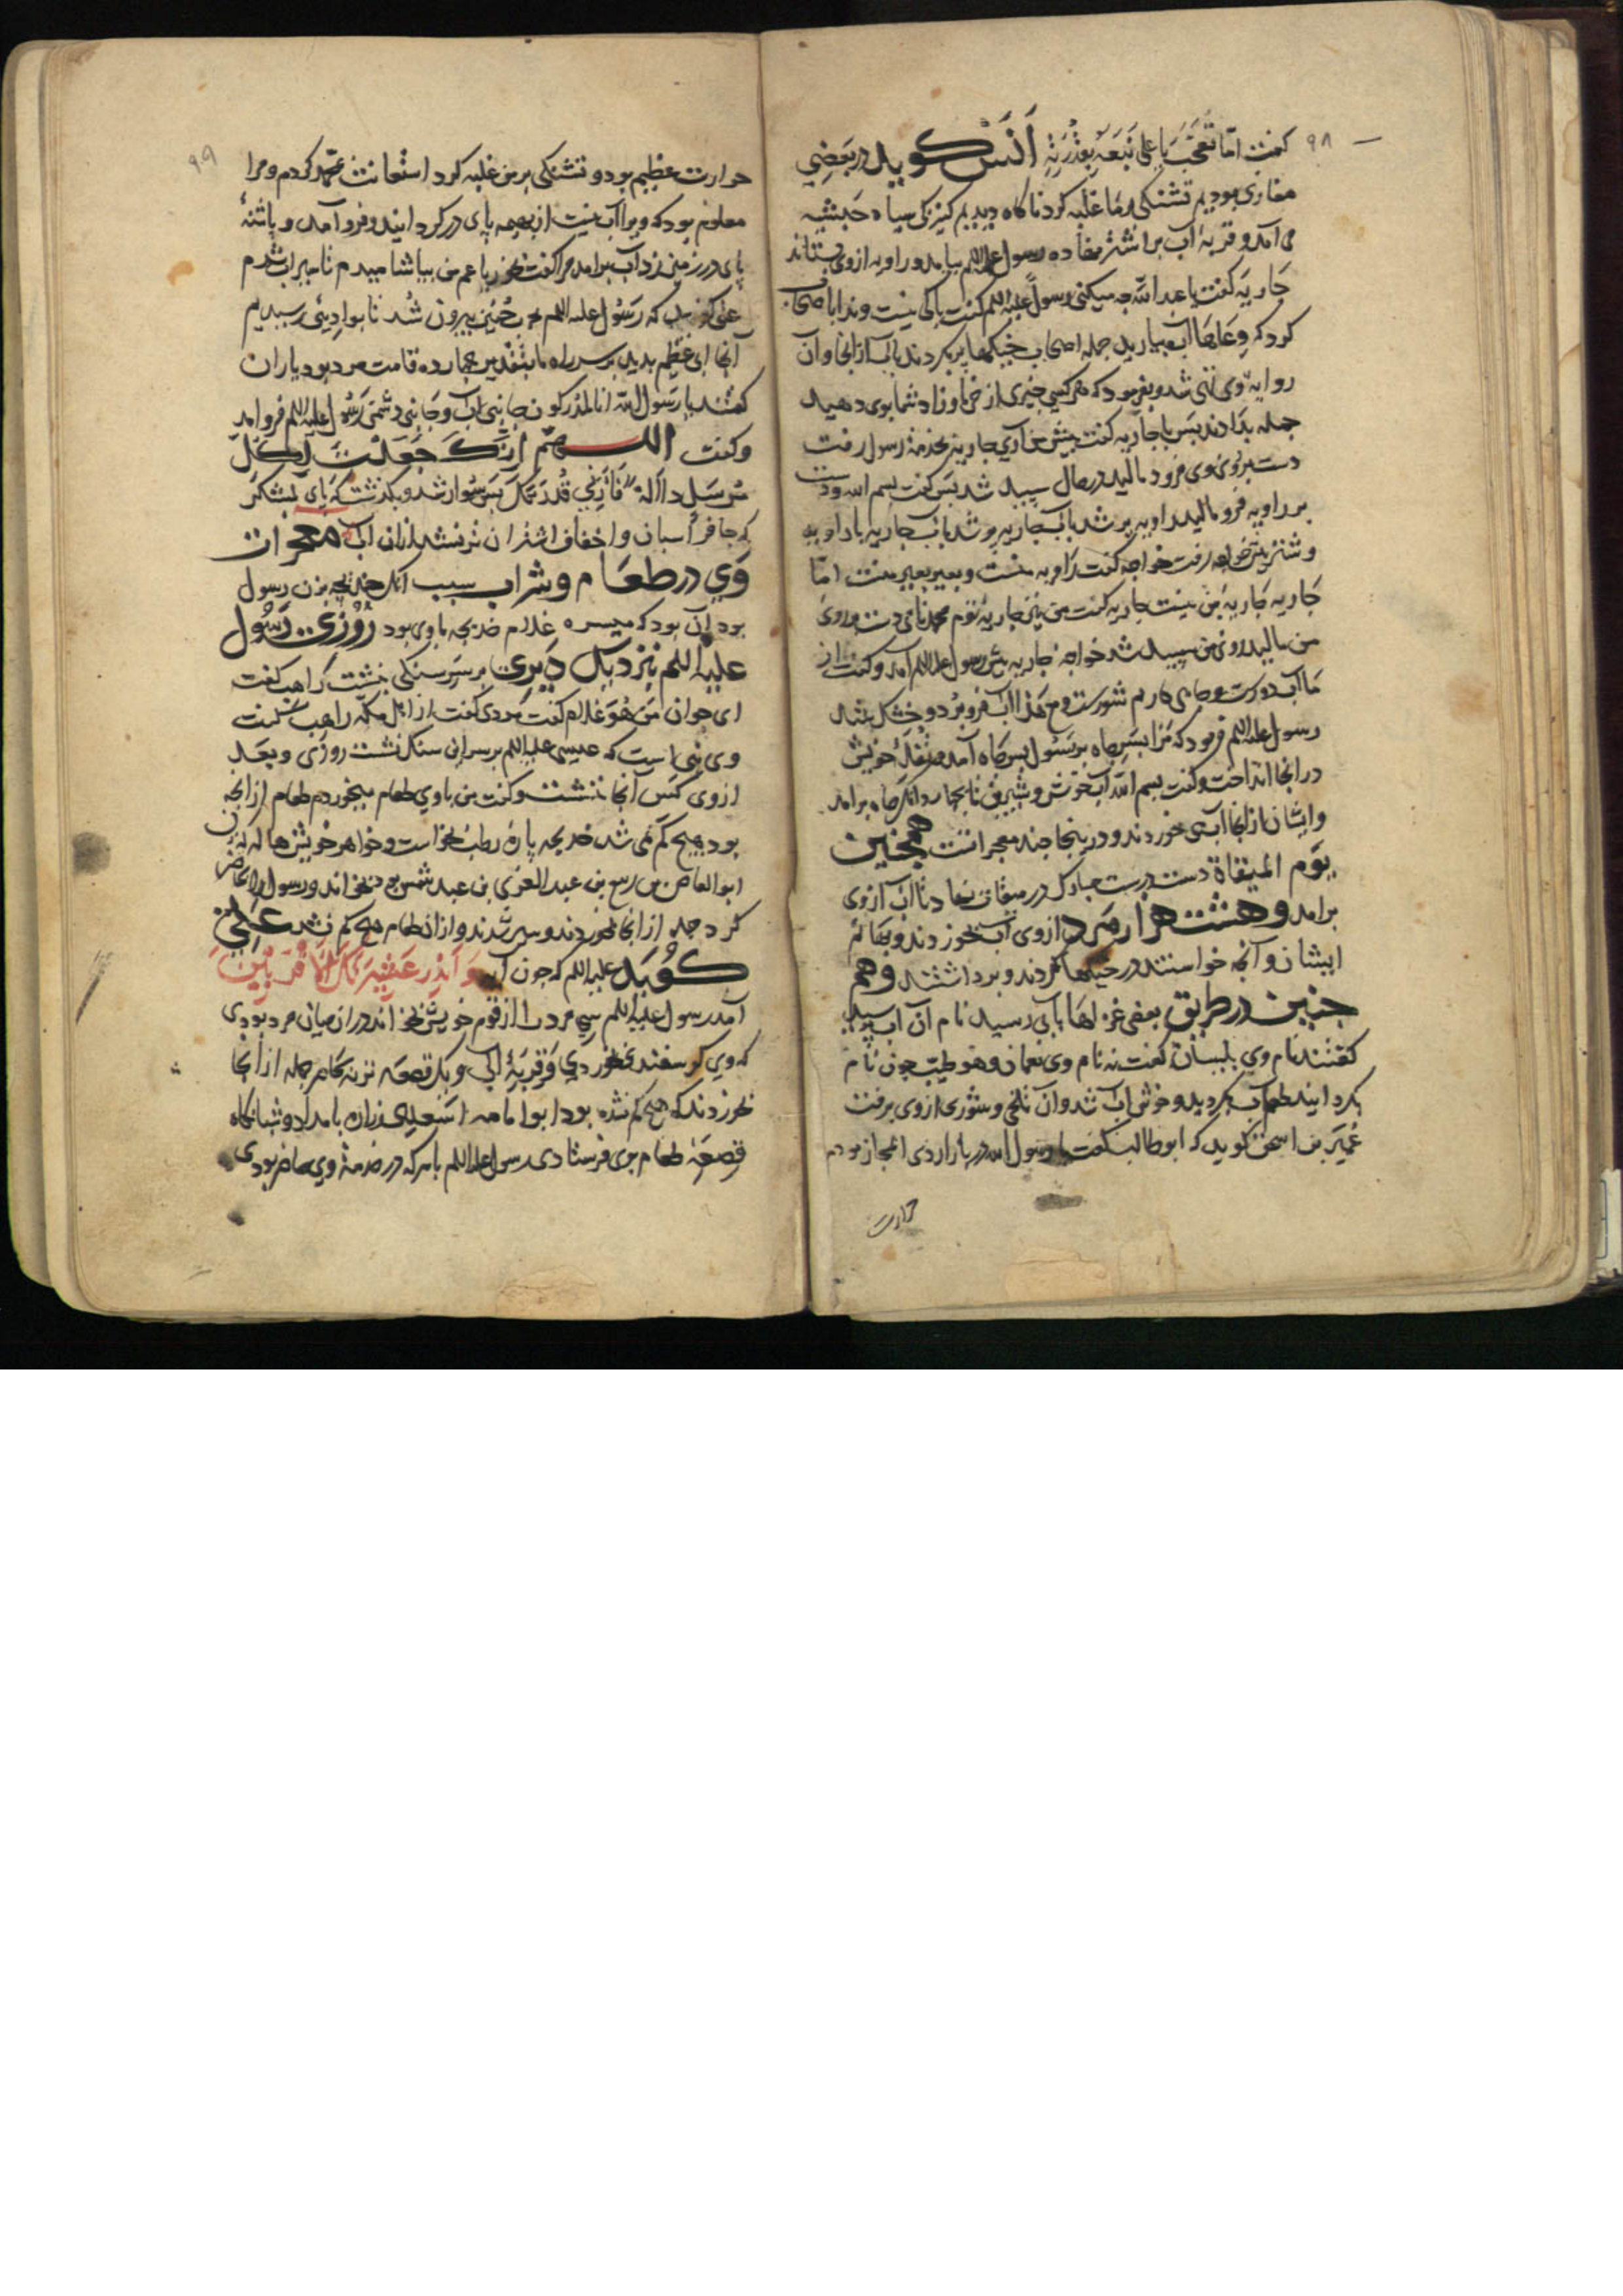 ۹۸
کفت اما تعجب یا علی انس کوید در بعضی
مغازی بودیم تشنکی بر ما غلبه کرد ناکاه دیدیم کنیزکی سیاه حبشیه
می آمد و قربهٔ آب بر اشتر نهاده رسول علیه اللم بیامد و راویه از وی بستاند
جاریه کفت یا عبد الله چه میکنی رسول علیه اللم کفت باکی نیست و ندا باصحاب
کرد که وعاها بیارید جمله اصحاب خیکها پر کردند بآب از انجا و آن
راویه وی تهی نشد و بفرمود که هر کسی چیزی از خرما و زاد شما بوی دهید
جمله بدادند پس با جاریه کفت پیش من آی جاریه بخدمة رسول رفت
دست بر روی وی فرود مالید در حال سپید شد پس کفت بسم الله و دست
بر راویه فرو مالید راویه پر شد بآب جاریه برو شد بآب جاریه با راویه
و شتر پیش خواجه رفت خواجه کفت راویه منست و بعیر بعیر منست اما
جاریه جاریهٔ من نیست جاریه کفت من نیز جاریهٔ توم محمد نامی دست بر روی
من مالید روی من سپید شد خواجهٔ جاریه پیش رسول علیه اللم آمد و کفت از
ما آب دورست و چاهی داریم شورست و مع هذا آب فرو برد و خشک شد
رسول علیه اللم فرمود که مرا بسر چاه بر رسول بسر چاه آمد و تفلهٔ خویش
در انجا انداخت و کفت بسم الله آب خوش و شیرین تا بکنار چاه برامد
و ایشان از انجا آب می خوردند و درینجا چند معجزاتست همچنین
یوم المیضاة دست مبارک در میضاة نهاد تا آب از وی
برامد و هشت هزار مرد از وی آب خوردند و بهائم
ایشان و آنچه خواستند در خیکها کردند و برداشتند و هم
چنین در طریق بعضی غزاها بآبی رسید نام آن آب پرسید
کفتند نام وی بیسان کفت نه نام وی نعمان و هو طیب چون نام
بکردانید طعم آب بکردید و خوش آب شد و آن تلخی و شوری از وی برفت
عمیر بن اسحق کوید که ابو طالب کفت با رسول الله در بازار ذی المجاز بودم
حرارت
۹۹
حرارت عظیم بود و تشنکی بر من غلبه کرد استعانت بمحمد کردم و مرا
معلوم بود که ویرا آب نیست از بهیمه پای در کردانید و فرو آمد و پاشنهٔ
پای در زمین زد آب برامد مرا کفت بخور یا عم من بیاشامیدم تا سیراب شدم
علی کوید که رسول علیه اللم بحنین بیرون شد تا بوادیئی رسیدیم
آنجا آبی عظیم بدید بر سر راه ما بتقدیر چهارده قامت مرد بود یاران
کفتند یا رسول الله انا لمدرکون جانبی آب و جانبی دشمن رسول علیه اللم فرو امد
و کفت اللهم انک جعلت لکل
مرسل دلالة فارنی قدرتک پس سوار شد و بکذشت با لشکر
که حافر اسبان و اخفاف اشتران تر نشد ازان آب معجزات
وی در طعام و شراب سبب آنک خدیجه بزن رسول
بود آن بود که میسره غلام خدیجه با وی بود روزی رسول
علیه اللم نزدیک دیری بر سر سنکی بنشست راهب کفت
ای جوان من هو غلام کفت مردی کفت از اهل مکه راهب کفت
وی نبی است که عیسی علیه اللم بر سر این سنک نشست روزی و بعد
از وی کس آنجا ننشست و کفت من با وی طعام میخوردم طعام از انچه
بود هیچ کم نمی شد خدیجه پارهٔ رطب بخواست و خواهر خویش هاله زن
ابو العاص بن ربیع بن عبد العزی بن عبد شمس بود بخواند و رسول را حاضر
کرد جمله از انجا بخوردند و سیر شدند و ازان طعام هیچ کم نشد علی
کوید علیه اللم که چون آیه و انذر عشیرتک الاقربین
آمد رسول علیه اللم سی مرد را از قوم خویش بخواند و در ان میان مرد بودی
که وی کوسفندی بخوردی و قربهٔ آب و یک قصعه ترید جمله از آنجا
بخوردند که هیچ کم نشده بود ابو امامه اسعد بن زراره بامداد و شبانکاه
قصعهٔ طعام بوی فرستادی رسول علیه اللم با هر که در خدمة وی حاضر بودی